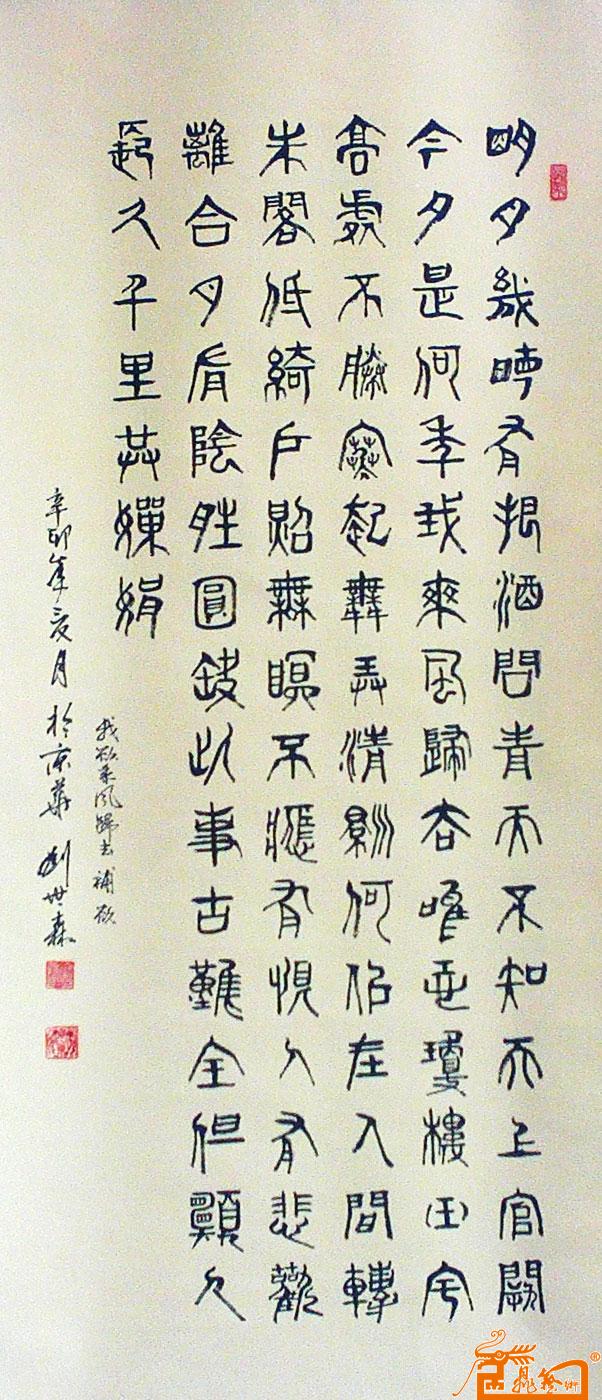 明月幾時有把酒問青天不知天上宮闕
今夕是何年我乘風歸去唯恐瓊樓玉宇
高處不勝寒起舞弄清影何似在人間轉
朱閣低綺戶照無眠不應有恨人有悲歡
離合月有陰晴圓缺此事古難全但願人
長久千里共嬋娟
我欲乘風歸去補欲
辛卯年夏月於京華 劉世森